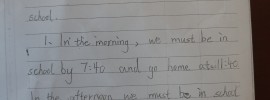 school.
1. In the morning, we must be in
school by 7:40 and go home at 11:40
In the afternoon we must be in school